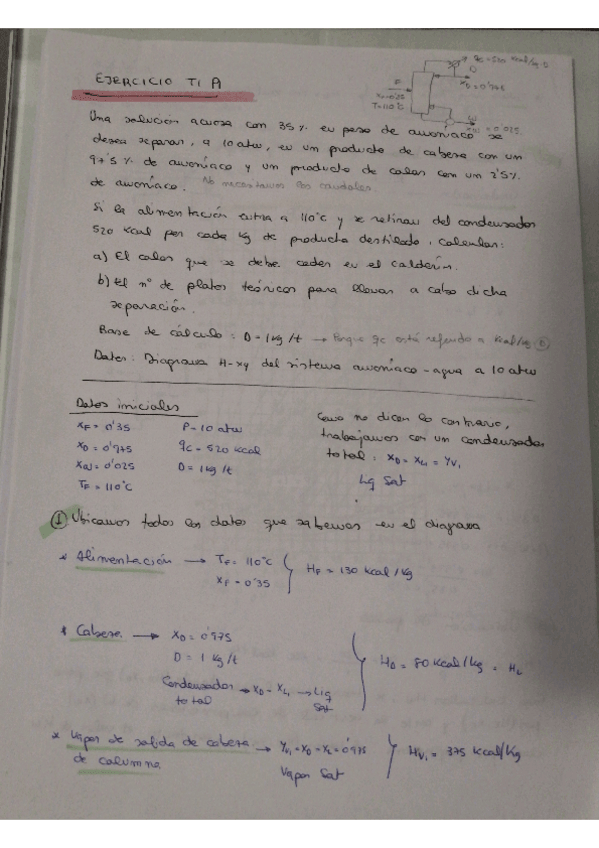 EJERCICIO T1 A
qc = 520 kcal/kg D
D
xD = 0'975
F
xF = 0'35
T = 110°C
W
xW = 0'025
Una solución acuosa con 35% en peso de amoníaco se
desea separar, a 10 atm, en un producto de cabeza con un
97'5% de amoníaco y un producto de colas con un 2'5%
de amoníaco. No necesitamos los caudales.
Si la alimentación entra a 110°C y se retiran del condensador
520 kcal por cada kg de producto destilado, calcular:
a) El calor que se debe ceder en el calderín.
b) El nº de platos teóricos para llevar a cabo dicha
separación.
Base de cálculo: D = 1 kg/t → Porque qc está referido a kcal/kg D
Datos: Diagrama H-xy del sistema amoníaco-agua a 10 atm
Datos iniciales
xF = 0'35 P = 10 atm
xD = 0'975 qc = 520 kcal
xW = 0'025 D = 1 kg/t
TF = 110°C
Como no dicen lo contrario,
trabajamos con un condensador
total: xD = xL1 = yV1
Lq Sat
① Ubicamos todos los datos que sabemos en el diagrama
* Alimentación → TF = 110°C
xF = 0'35
HF = 130 kcal/kg
* Cabeza → xD = 0'975
D = 1 kg/t
Condensador → xD = xL1 → Liq
total Sat
HD = 80 kcal/kg = HL
* Vapor de salida de cabeza → yV1 = xD = xL = 0'975
de columna Vapor Sat
HV1 = 375 kcal/kg